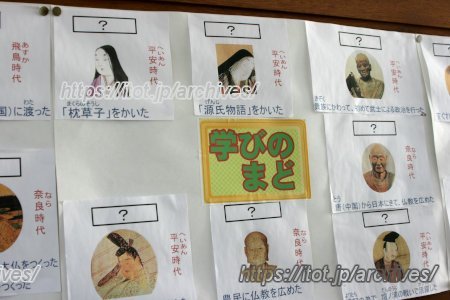 ?
?
?
あすか
飛鳥時代
へいあん
平安時代
へいあん
平安時代
へいあん
平安時代
わた
国)に渡った
まくらのそうし
「枕草子」をかいた
げんじ
「源氏物語」をかいた
きぞく
貴族にかわって、初めて武士による政治を行った
学びの
まど
?
なら
奈良時代
とう
唐(中国)から日本にきて、仏教を広めた
なら
奈良時代
大仏をつくった
?
へいあん
平安時代
?
なら
奈良時代
農民に仏教を広めた
?
へいあん
平安時代
https://itot.jp/archives/
https://itot.jp/archives/